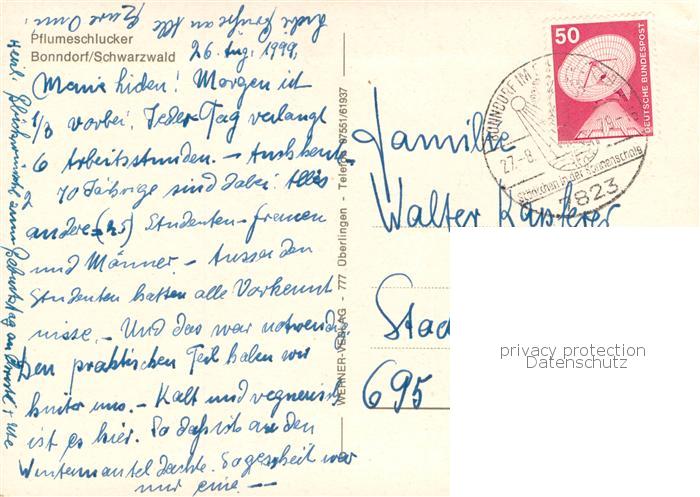 Pflumeschlucker
Bonndorf/Schwarzwald
26. Aug. 1979,
Meine lieben! Morgen ist
1/3 vorbei. Jeder Tag verlangt
6 Arbeitsstunden. – Auch heute
70 Jährige sind dabei. Alles
andere Studenten – Frauen
und Männer. – Ausser den
Studenten hatten alle Vorkennt
nisse. – Und das war notwendig.
Den praktischen Teil haben wir
hinter uns. – Kalt und regnerisch
ist es hier. So daß ich an den
Wintermantel dachte. So gescheit war
nur eine. –
Herzl. Glückwünsche zum Geburtstag an
WERNER-VERLAG - 777 Überlingen - Telefon 07551/61937
50
DEUTSCHE BUNDESPOST
BONNDORF IM
27.-8.
79.-
Stübchen in der Sonnenschule
7823
Familie
Walter
Stad
695
privacy protection
Datenschutz